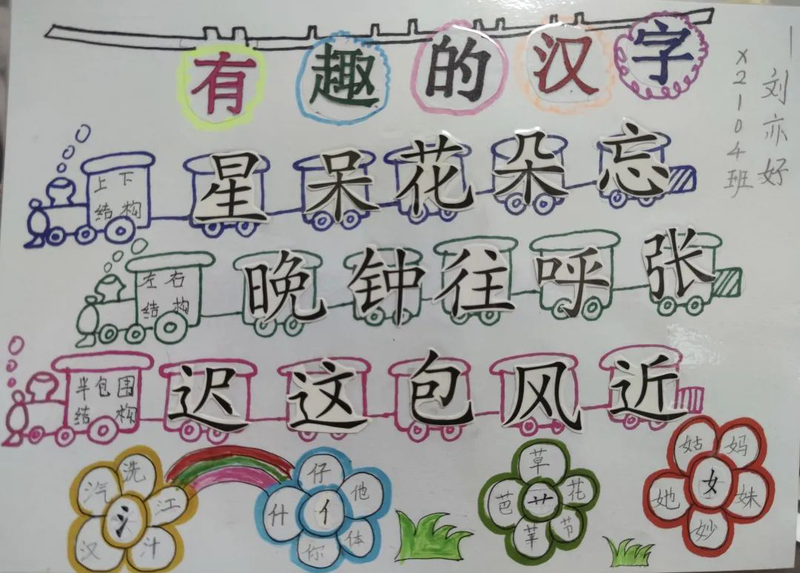 有趣的汉字
—刘亦好
X2104班
上下
结构
星呆花朵忘
左右
结构
晚钟往呼张
半包围
结构
迟这句风近
汽洗江汁汉
氵
仔他体你什
亻
草花节芭
艹
姑妈妹妙她
女